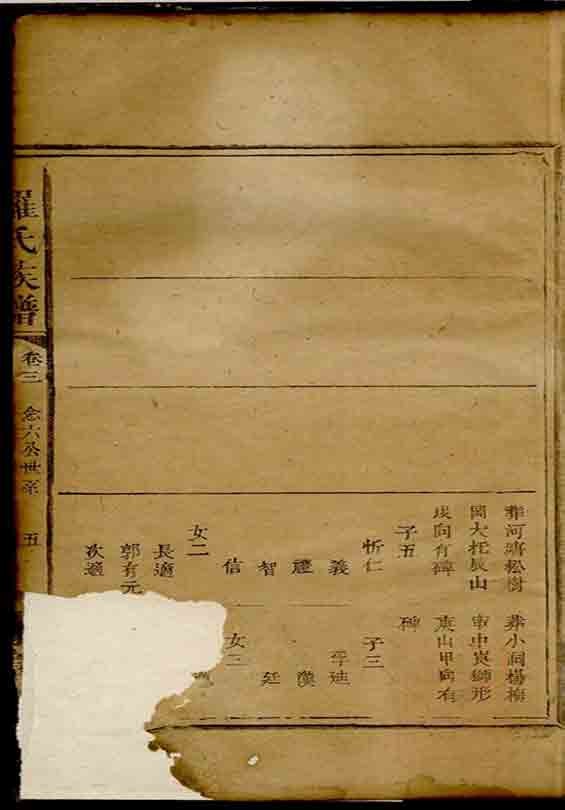 葬河塘松樹
岡大辰山
戌向有碑
子五
忻仁
義
禮
智
信
女二
長適
郭有元
次適
葬小洞楊梅
中寅獅形
庚山甲向有
碑
子三
廸
漢
廷
女三
羅氏族譜
卷三
念六公世系
五